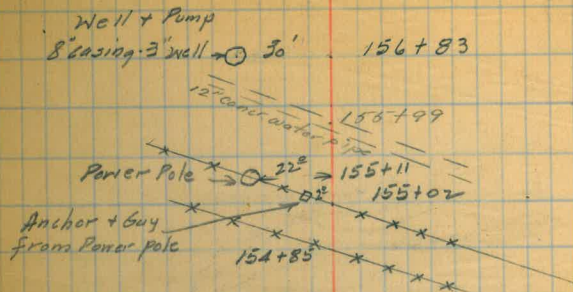 Well + Pump
8" casing - 3" well 30' 156+83
12" concr water pipe 155+99
Power Pole 22º 155+11
2º 155+02
Anchor + Guy
from Power pole
154+85